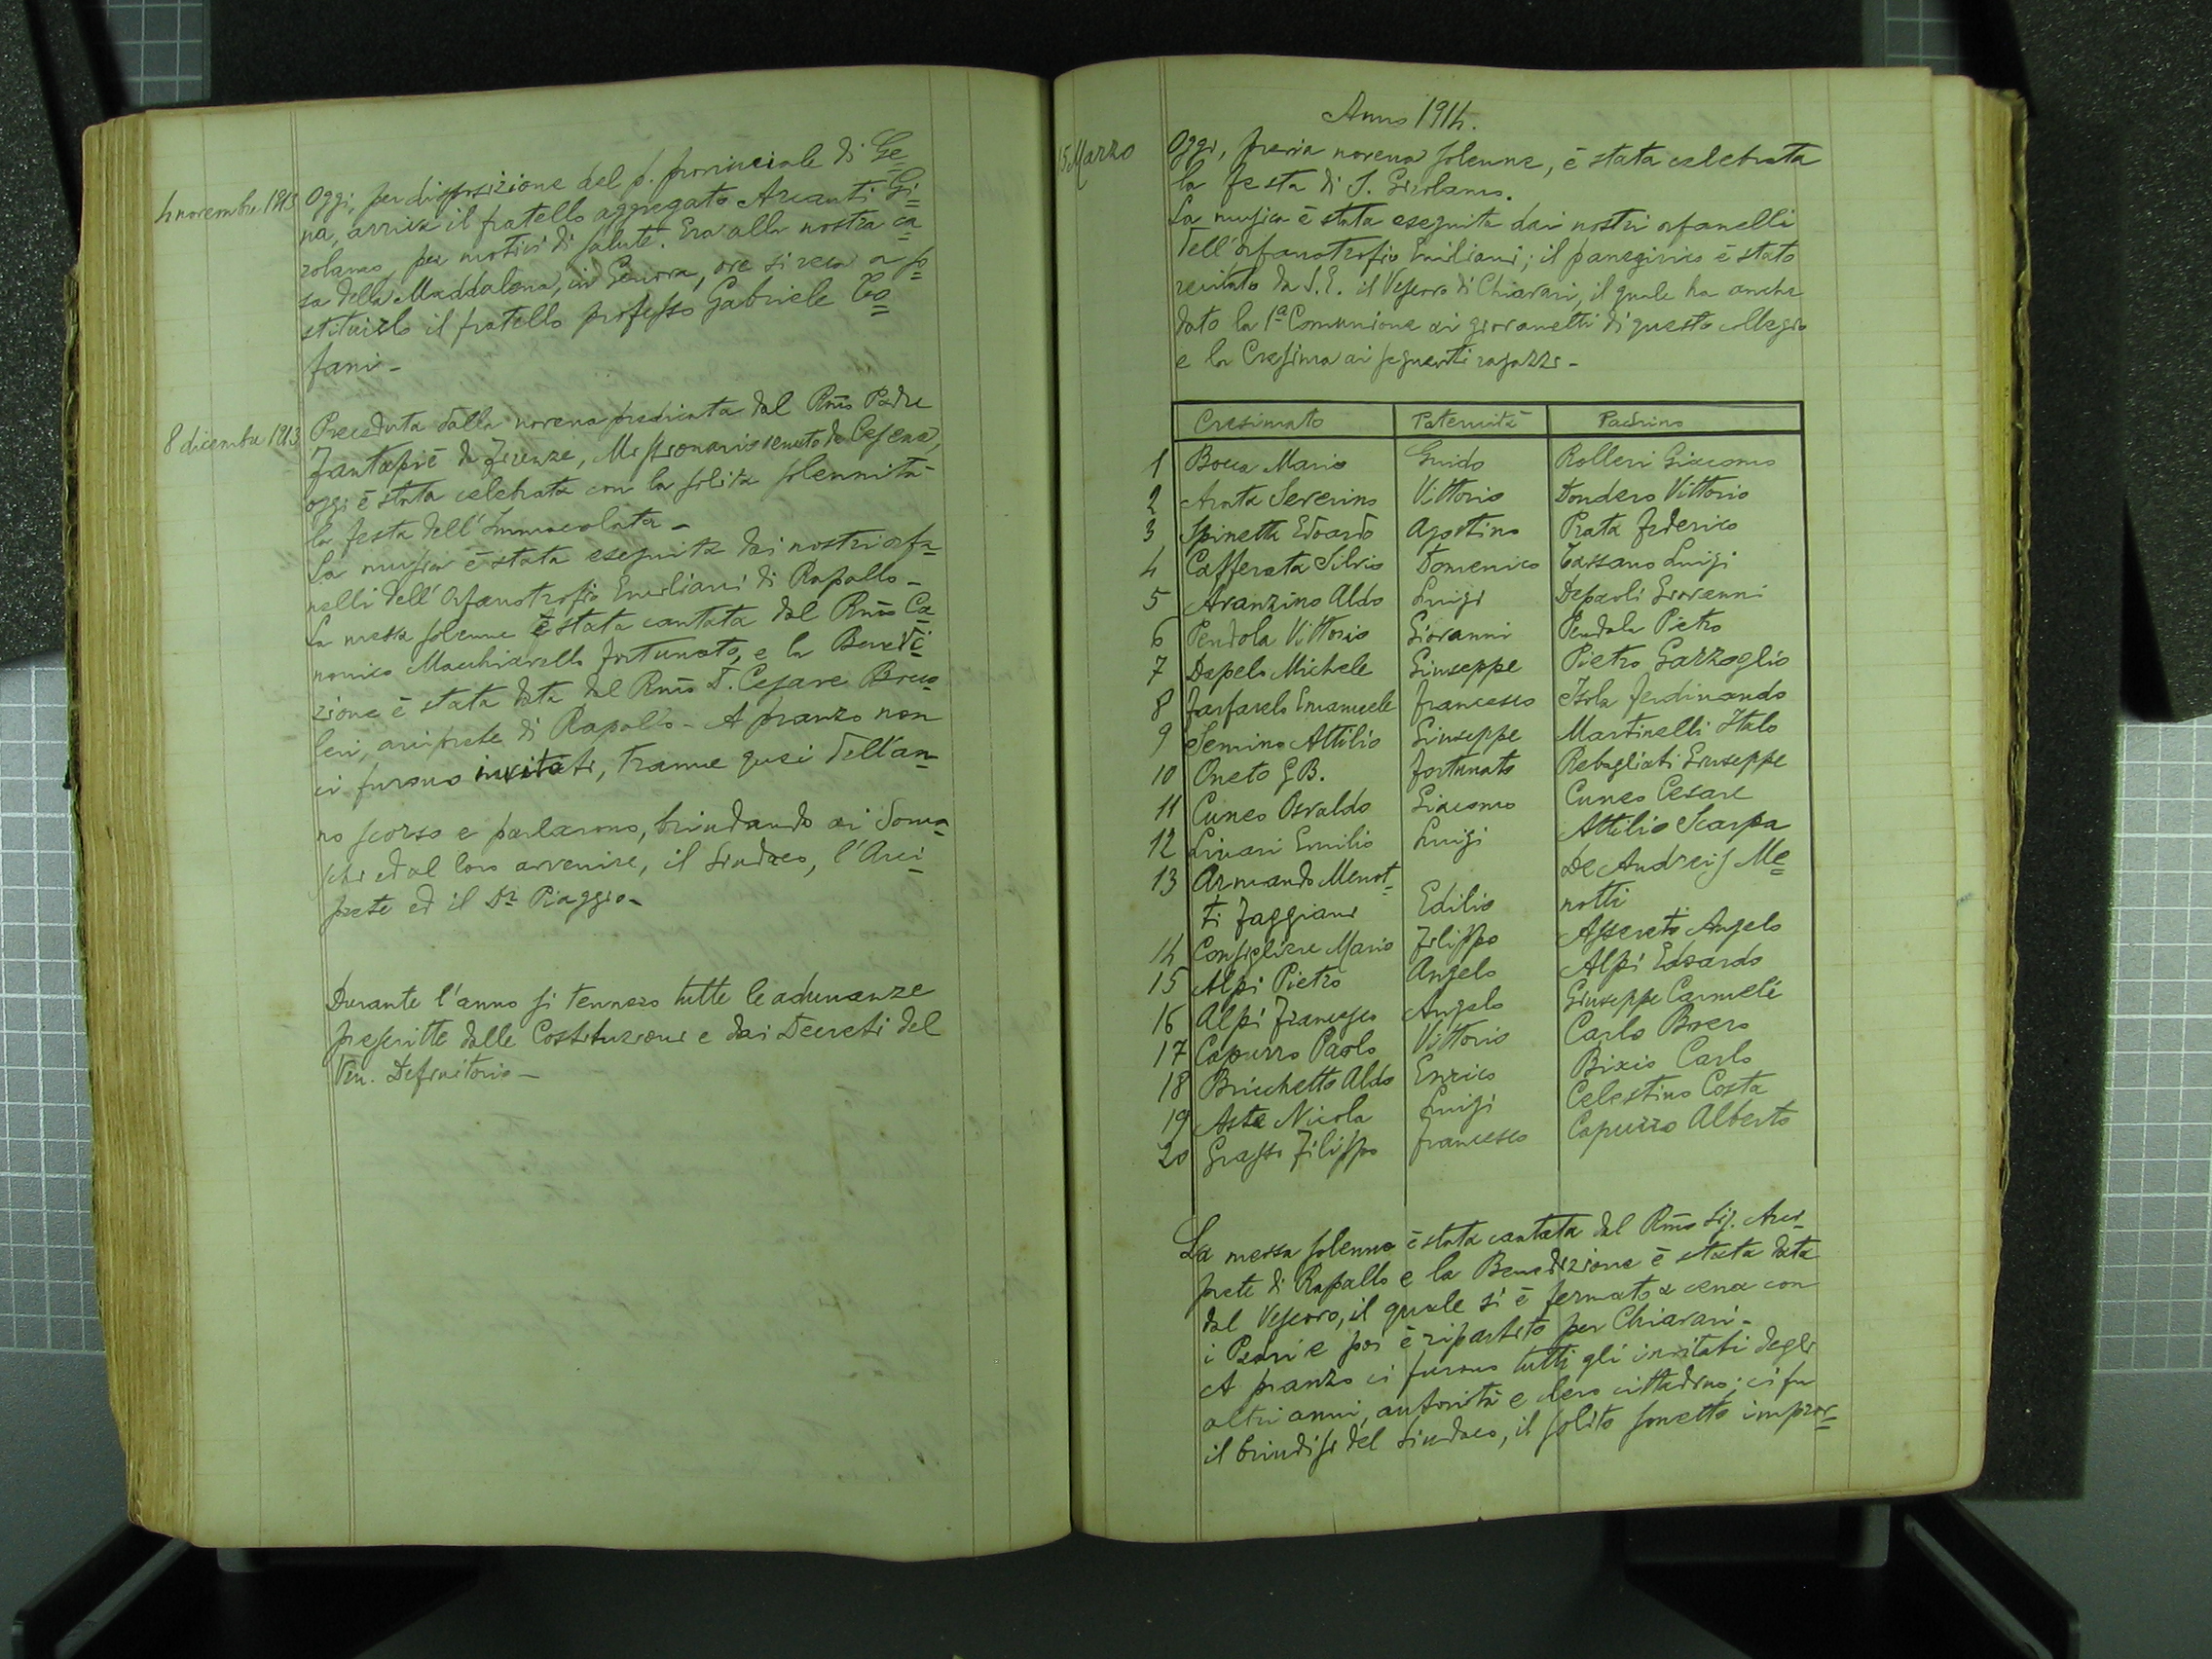 4 novembre 1913 Oggi, per disposizione del p. provinciale di Ge=
na, arriva il fratello aggregato Arcanti Gi=
rolamo, per motivi di salute. Era alla nostra ca=
sa della Maddalena, in Genova, ove si reca a so=
stituirlo il fratello professo Gabriele Co=
fani -
8 dicembre 1913 Preceduta dalla novena predicata dal Rmo Padre
Fantapié da Firenze, Missionario venuto da Cesena,
oggi è stata celebrata con la solita solennità
la festa dell'Immacolata -
La musica è stata eseguita dai nostri orfa=
nelli dell'Orfanotrofio Emiliani di Rapallo -
La messa solenne è stata cantata dal Rmo Ca=
nonico Macchiavello Fortunato, e la Benedi=
zione è stata data dal Rmo D. Cesare Broco=
leri, arciprete di Rapallo - A pranzo non
ci furono invitati, tranne quei dell'an=
no scorso e parlarono, brindando ai Soma=
schi ed al loro avvenire, il Sindaco, l'Arci=
prete ed il Dr. Piaggio -
Durante l'anno si tennero tutte le adunanze
prescritte dalle Costituzioni e dai Decreti del
Ven. Definitorio -
Anno 1914.
15 Marzo Oggi, previa novena solenne, è stata celebrata
la festa di S. Girolamo.
La musica è stata eseguita dai nostri orfanelli
dell'Orfanotrofio Emiliani; il panegirico è stato
recitato da S. E. il Vescovo di Chiavari, il quale ha anche
dato la 1a Comunione ai giovanetti di questo collegio
e la Cresima ai seguenti ragazzi -
Cresimato Paternità Padrino
1 Bocca Mario Guido Rolleri Giacomo
2 Arata Severino Vittorio Dondero Vittorio
3 Spinetta Edoardo Agostino Prata Federico
4 Cafferata Silvio Domenico Tassano Luigi
5 Avanzino Aldo Luigi Depaoli Giovanni
6 Pendola Vittorio Giovanni Pendola Pietro
7 Dapelo Michele Giuseppe Pietro Gazzoglio
8 Farfarelo Emanuele Francesco Isola Ferdinando
9 Semino Attilio Giuseppe Martinelli Italo
10 Oneto G.B. Fortunato Rebagliati Giuseppe
11 Cuneo Osvaldo Giacomo Cuneo Cesare
12 Livari Emilio Luigi Attilio Scarpa
13 Armando Menot= De Andreis Me=
ti Faggiani Edilio notti
14 Consigliere Mario Filippo Assereto Angelo
15 Alpi Pietro Angelo Alpi Edoardo
16 Alpi Francesco Angelo Giuseppe Carmeli
17 Capurro Paolo Vittorio Carlo Boero
18 Bricchetto Aldo Enrico Bixio Carlo
19 Aste Nicola Luigi Celestino Costa
20 Grasso Filippo Francesco Capurro Alberto
La messa solenne è stata cantata dal Rmo Sig. Arci=
prete di Rapallo e la Benedizione è stata data
dal Vescovo, il quale si è fermato a cena con
i Padri e poi è ripartito per Chiavari -
A pranzo ci furono tutti gli invitati degli
altri anni, autorità e clero cittadino; ci fu
il brindisi del Sindaco, il solito sonetto improv=